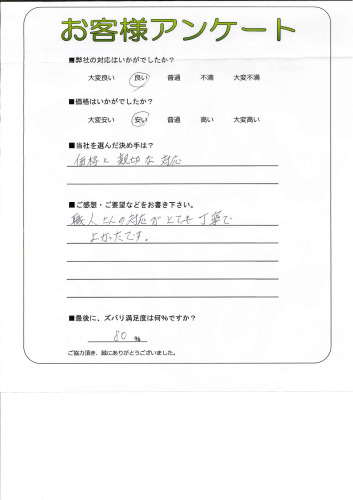 お客様アンケート
■弊社の対応はいかがでしたか？
大変良い 良い 普通 不満 大変不満
■価格はいかがでしたか？
大変安い 安い 普通 高い 大変高い
■当社を選んだ決め手は？
価格と親切な対応
■ご感想・ご要望などをお書き下さい。
職人さんの対応がとても丁寧で
よかったです。
■最後に、ズバリ満足度は何％ですか？
80 ％
ご協力頂き、誠にありがとうございました。